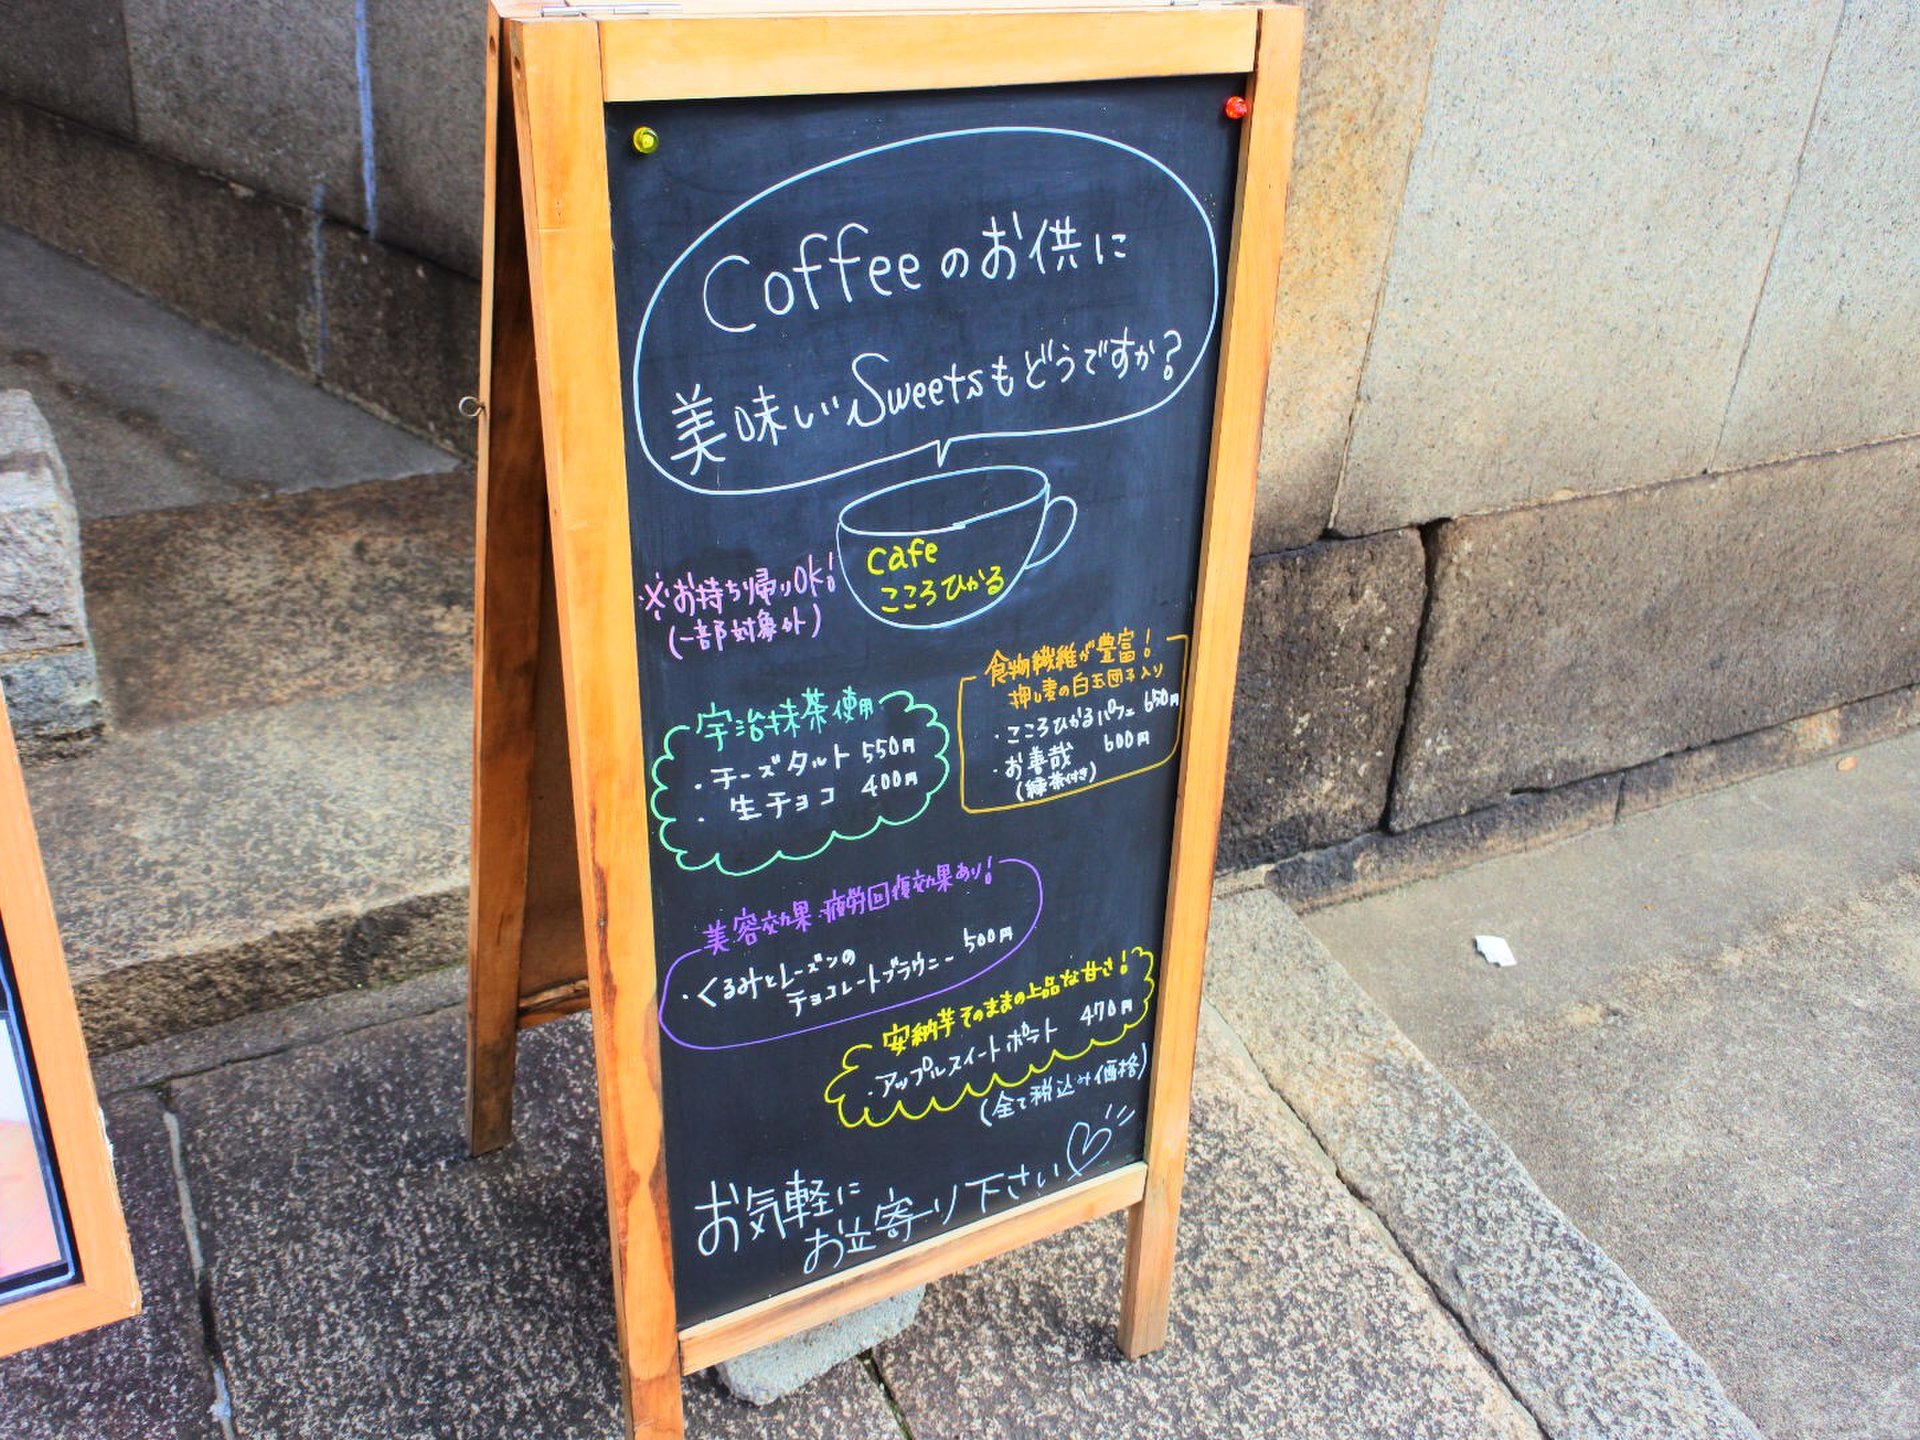 Coffeeのお供に
美味しいSweetsもどうですか?
cafe
こころひかる
※お持ち帰りOK!
(一部対象外)
食物繊維が豊富!
押し麦の白玉団子入り
・こころひかるパフェ 650円
・お善哉 600円
(緑茶付き)
宇治抹茶使用
・チーズタルト 550円
・生チョコ 400円
美容効果・疲労回復効果あり!
・くるみとレーズンの
チョコレートブラウニー 500円
安納芋そのままの上品な甘さ!
・アップルスイートポテト 470円
(全て税込み価格)
お気軽に
お立寄り下さい♡